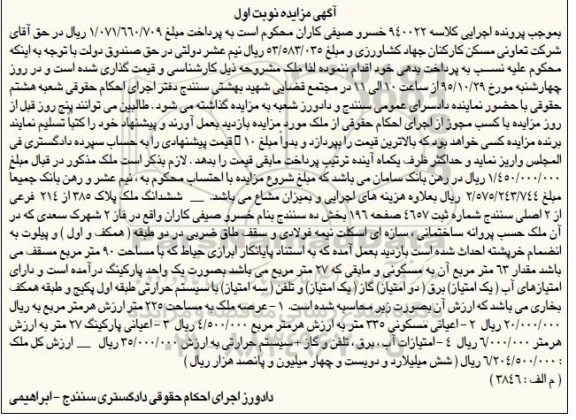 آگهی مزایده نوبت اول
بموجب پرونده اجرایی کلاسه ۹۴۰۰۲۲ خسرو صیفی کاران محکوم است به پرداخت مبلغ ۱/۰۷۱/۶۶۰/۷۰۹ ریال در حق آقای
شرکت تعاونی مسکن کارکنان جهاد کشاورزی و مبلغ ۵۳/۵۸۳/۰۳۵ ریال نیم عشر دولتی در حق صندوق دولت با توجه به اینکه
محکوم علیه نسسب به پرداخت بدهی خود اقدام ننموده لذا ملک مشروحه ذیل کارشناسی و قیمت گذاری شده است و در روز
چهارشنبه مورخ ۹۵/۱۰/۲۹ از ساعت ۱۰ الی ۱۱ در مجتمع قضایی شهید بهشتی سنندج دفتر اجرای احکام حقوقی شعبه هشتم
حقوقی با حضور نماینده دادسرای عمومی سنندج و دادورز شعبه به مزایده گذاشته می شود . طالبین می توانند پنج روز قبل از
روز مزایده با کسب مجوز از اجرای احکام حقوقی از ملک مورد مزایده بازدید بعمل آورند و پیشنهاد خود را کتباً تسلیم نمایند
برنده مزایده کسی خواهد بود که بالاترین قیمت را بپردازد و بدوا مبلغ ۱۰ قیمت پیشنهادی را به حساب سپرده دادگستری فی
المجلس واریز نماید و حداکثر ظرف یکماه آینده ترتیب پرداخت مابقی قیمت را بدهد . لازم بذکر است ملک مذکور در قبال مبلغ
۱/۴۵۰/۰۰۰/۰۰۰ ریال در رهن بانک سامان می باشد که مبلغ شروع مزایده با احتساب محکوم به ، نیم عشر و رهن بانک جمیعا
مبلغ ۲/۵۷۵/۲۴۳/۷۴۴ ریال بعلاوه هزینه های اجرایی و بمیزان مشاع می باشد. __ ششدانگ ملک پلاک ۳۸۵ از ۲۱۴ فرعی
از ۲ اصلی سنندج شماره ثبت ۴۶۵۷ صفحه ۱۹۶ بخش ده سنندج بنام خسرو صیفی کاران واقع در فاز ۲ شهرک سعدی که در
آن ملک حسب پروانه ساختمانی ، سازه ای اسکلت نیمه فولادی و سقف طاق ضربی در دو طبقه ( همکف و اول ) و پیلوت به
انضمام خرپشته احداث شده است بازدید بعمل آمده که به استناد پایانکار ابرازی حیاط که با مساحت ۹۰ متر مربع مسقف می
باشد مقدار ۶۳ متر مربع آن به مسکونی و مابقی که ۲۷ متر مربع می باشد بصورت یک واحد پارکینگ درآمده است و دارای
امتیازهای آب ( یک امتیاز) برق ( دو امتیاز) گاز ( یک امتیاز) و تلفن (سه امتیاز) با سیستم حرارتی طبقه اول پکیج و طبقه همکف
بخاری می باشد که ارزش آن بصورت زیر محاسبه شده است. ۱ - عرصه ملک به مساحت ۲۲۵ متر ارزش هرمتر مربع به ریال
۲۰/۰۰۰/۰۰۰ ریال ۲ - اعیانی مسکونی ۳۳۵ متر به ارزش هرمتر مربع ۴/۵۰۰/۰۰۰ ریال ۳ - اعیانی پارکینگ ۲۷ متر به ارزش
هرمتر ۶/۰۰۰/۰۰۰ ریال ۴ - امتیازات آب ، برق ، تلفن و گاز + سیستم حرارتی به ارزش ۳۵/۰۰۰/۰۰۰ ریال __ ارزش کل ملک
: ۶/۲۰۴/۵۰۰/۰۰۰ ریال ( شش میلیارد و دویست و چهار میلیون و پانصد هزار ریال )
( م الف : ۳۸۴۶ )
دادورز اجرای احکام حقوقی دادگستری سنندج - ابراهیمی